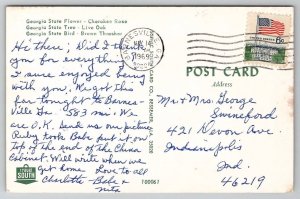 Georgia State Flower - Cherokee Rose
Georgia State Tree - Live Oak
Georgia State Bird - Brown Thrasher
Hi there; Did I thank
you for everything?
I sure enjoyed being
with you. We got this
far tonight to Barnes-
ville Ga. 583 mi. We
are O.K. Send us our picture
Ruby took Babe put it on
top of the end of the China
Cabinet. Will write when we
get home. Love to all
Charlotte - Babe &
BARNESVILLE, GA.
1969
6c
POST CARD
Address
Mr & Mrs. George
Swineford
421 Devon Ave
Indianapolis
Ind.
46219
SOUTH
100967